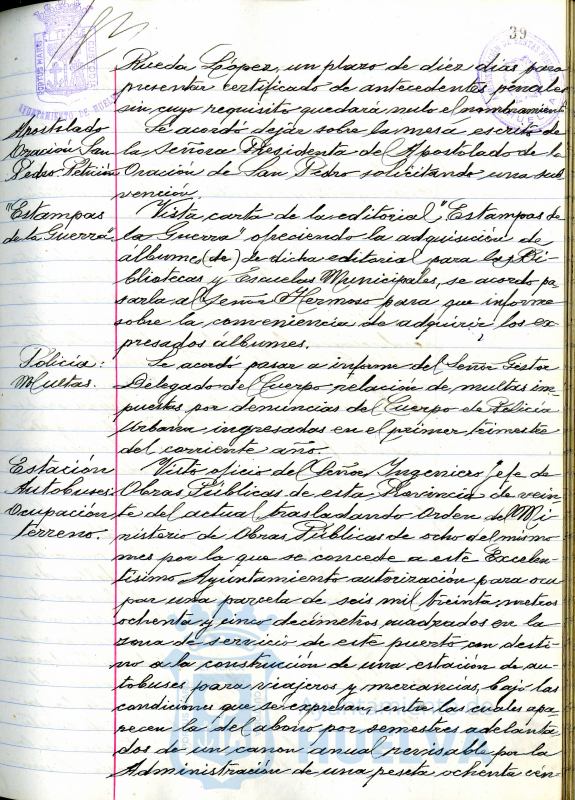 39
Rueda López, un plazo de diez días para
presentar certificado de antecedentes penales
sin cuyo requisito quedará nulo el nombramient
Apostolado
Oración San
Pedro. Petición
Se acordó dejar sobre la mesa escrito de
la Señora Presidenta del Apostolado de la
Oración de San Pedro solicitando una sub
vención.
"Estampas
de la Guerra".
Vista carta de la editorial "Estampas de
la Guerra" ofreciendo la adquisición de
álbumes (de) de dicha editorial para las Bi
bliotecas y Escuelas Municipales, se acordó pa
sarla al Señor Hermoso para que informe
sobre la conveniencia de adquirir los ex
presados álbumes.
Policía:
Multas.
Se acordó pasar a informe del Señor Gestor
Delegado del Cuerpo relación de multas im
puestas por denuncias del Cuerpo de Policía
Urbana ingresados en el primer trimestre
del corriente año.
Estación
Autobuses:
Ocupación
terreno.
Visto oficio del Señor Ingeniero Jefe de
Obras Públicas de esta Provincia de vein
te del actual trasladando Orden del Mi
nisterio de Obras Públicas de ocho del mismo
mes por la que se concede a este Excelen
tísimo Ayuntamiento autorización para ocu
par una parcela de seis mil treinta metros
ochenta y cinco decímetros cuadrados en la
zona de servicio de este puerto con desti
no a la construcción de una estación de au
tobuses para viajeros y mercancías, bajo las
condiciones que se expresan, entre las cuales apa
recen la del abono por semestres adelanta
dos de un canon anual revisable por la
Administración de una peseta ochenta cén-
Ayuntamiento de
HUELVA